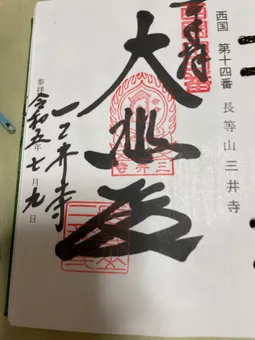 西国 第十四番 長等山三井寺
奉拝
大悲殿
三井寺
参拝 令和五年七月九日